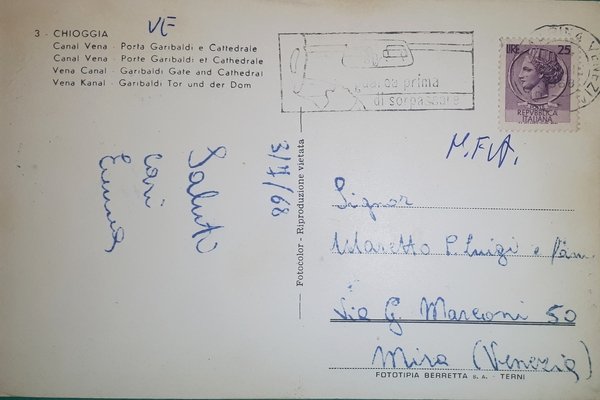 3 - CHIOGGIA
VE
Canal Vena - Porta Garibaldi e Cattedrale
Canal Vena - Porte Garibaldi et Cathedrale
Vena Canal - Garibaldi Gate and Cathedral
Vena Kanal - Garibaldi Tor und der Dom
guarda prima
di sorpassare
LIRE 25
REPUBBLICA
ITALIANA
VENEZIA
Saluti
cari
Emma
3/7/68
Fotocolor - Riproduzione vietata
Signor
P. Luigi e fam.
Via G. Marconi 50
Mira (Venezia)
FOTOTIPIA BERRETTA S. A. - TERNI